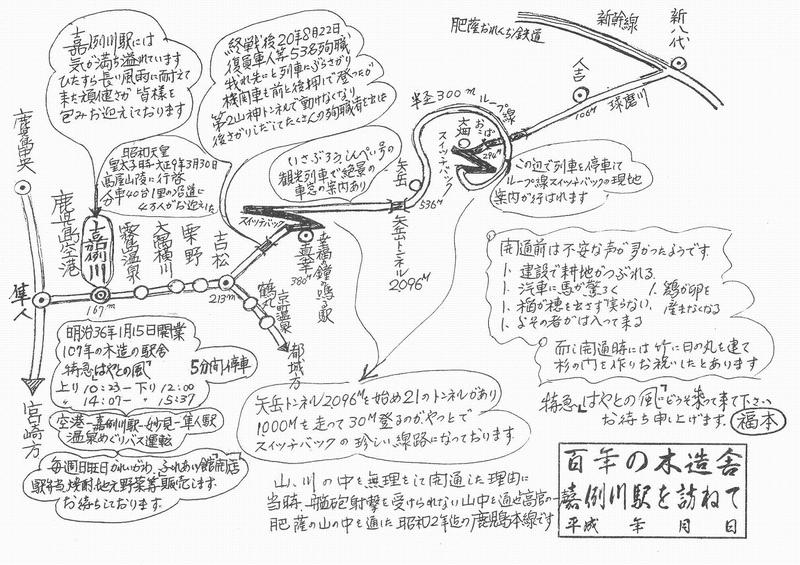 嘉例川駅には
気が満ち溢れています
ひたすら長い風雨に耐えて
来た頑健さが皆様を
包みお迎えしております
終戦後20年8月22日
復員軍人等53名殉職
我れ先にと列車にぶらさがり
機関車を前と後押で登ったが
第2山神トンネルで動けなくなり
後さがりしだしてたくさんの殉職者を出した
肥薩おれんじ鉄道
新幹線
新八代
人吉
球磨川
106M
半径300m ループ線
大畑
おこば
スイッチバック
294M
この辺で列車を停車して
ループ線スイッチバックの現地
案内が行はれます
昭和天皇
皇太子時 大正9年3月30日
高屋山陵に行啓
分車40台1里の沿道に
4万人がお迎えした
いさぶろう、しんぺい号の
観光列車で絶景の
車窓の案内あり
矢岳
536M
矢岳トンネル
2096M
スイッチバック
真幸
380M
幸福の鐘の鳴る駅
鹿児島中央
鹿児島空港
嘉例川
霧島温泉
大隅横川
栗野
吉松
隼人
167m
213m
鶴丸
京町温泉
都城方
宮崎方
開通前は不安な声が多かったようです
1. 建設で耕地がつぶれる
1. 汽車に馬が驚ろく
1. 鶏が卵を産まなくなる
1. 稲が穂を出さず実らない
1. よその者がは入って来る
而し開通時には竹に日の丸を建て
杉の門を作りお祝いしたとあります
特急「はやとの風」どうぞ乗って来て下さい
お待ち申し上げます。 福本
明治36年1月15日開業
107年の木造の駅舎
特急「はやとの風」 5分間停車
上り 10:23 ー 下り 12:00
〃 14:07 ー 〃 15:37
空港ー嘉例川駅ー妙見ー隼人駅
温泉めぐりバス運転
毎週日曜日かれいがわ、ふれあい館開店
駅弁当焼酎、地元野菜等販売します。
お待ちしております。
矢岳トンネル2096Mを始め21のトンネルがあり
1000Mを走って30M登るのがやっとで
スイッチバックの珍しい線路になっております。
山、川の中を無理をして開通した理由に
当時、艦砲射撃を受けられない山中を通せ高官の一
肥薩の山の中を通した昭和2年迄の鹿児島本線です
百年の木造舎
嘉例川駅を訪ねて
平成 年 月 日